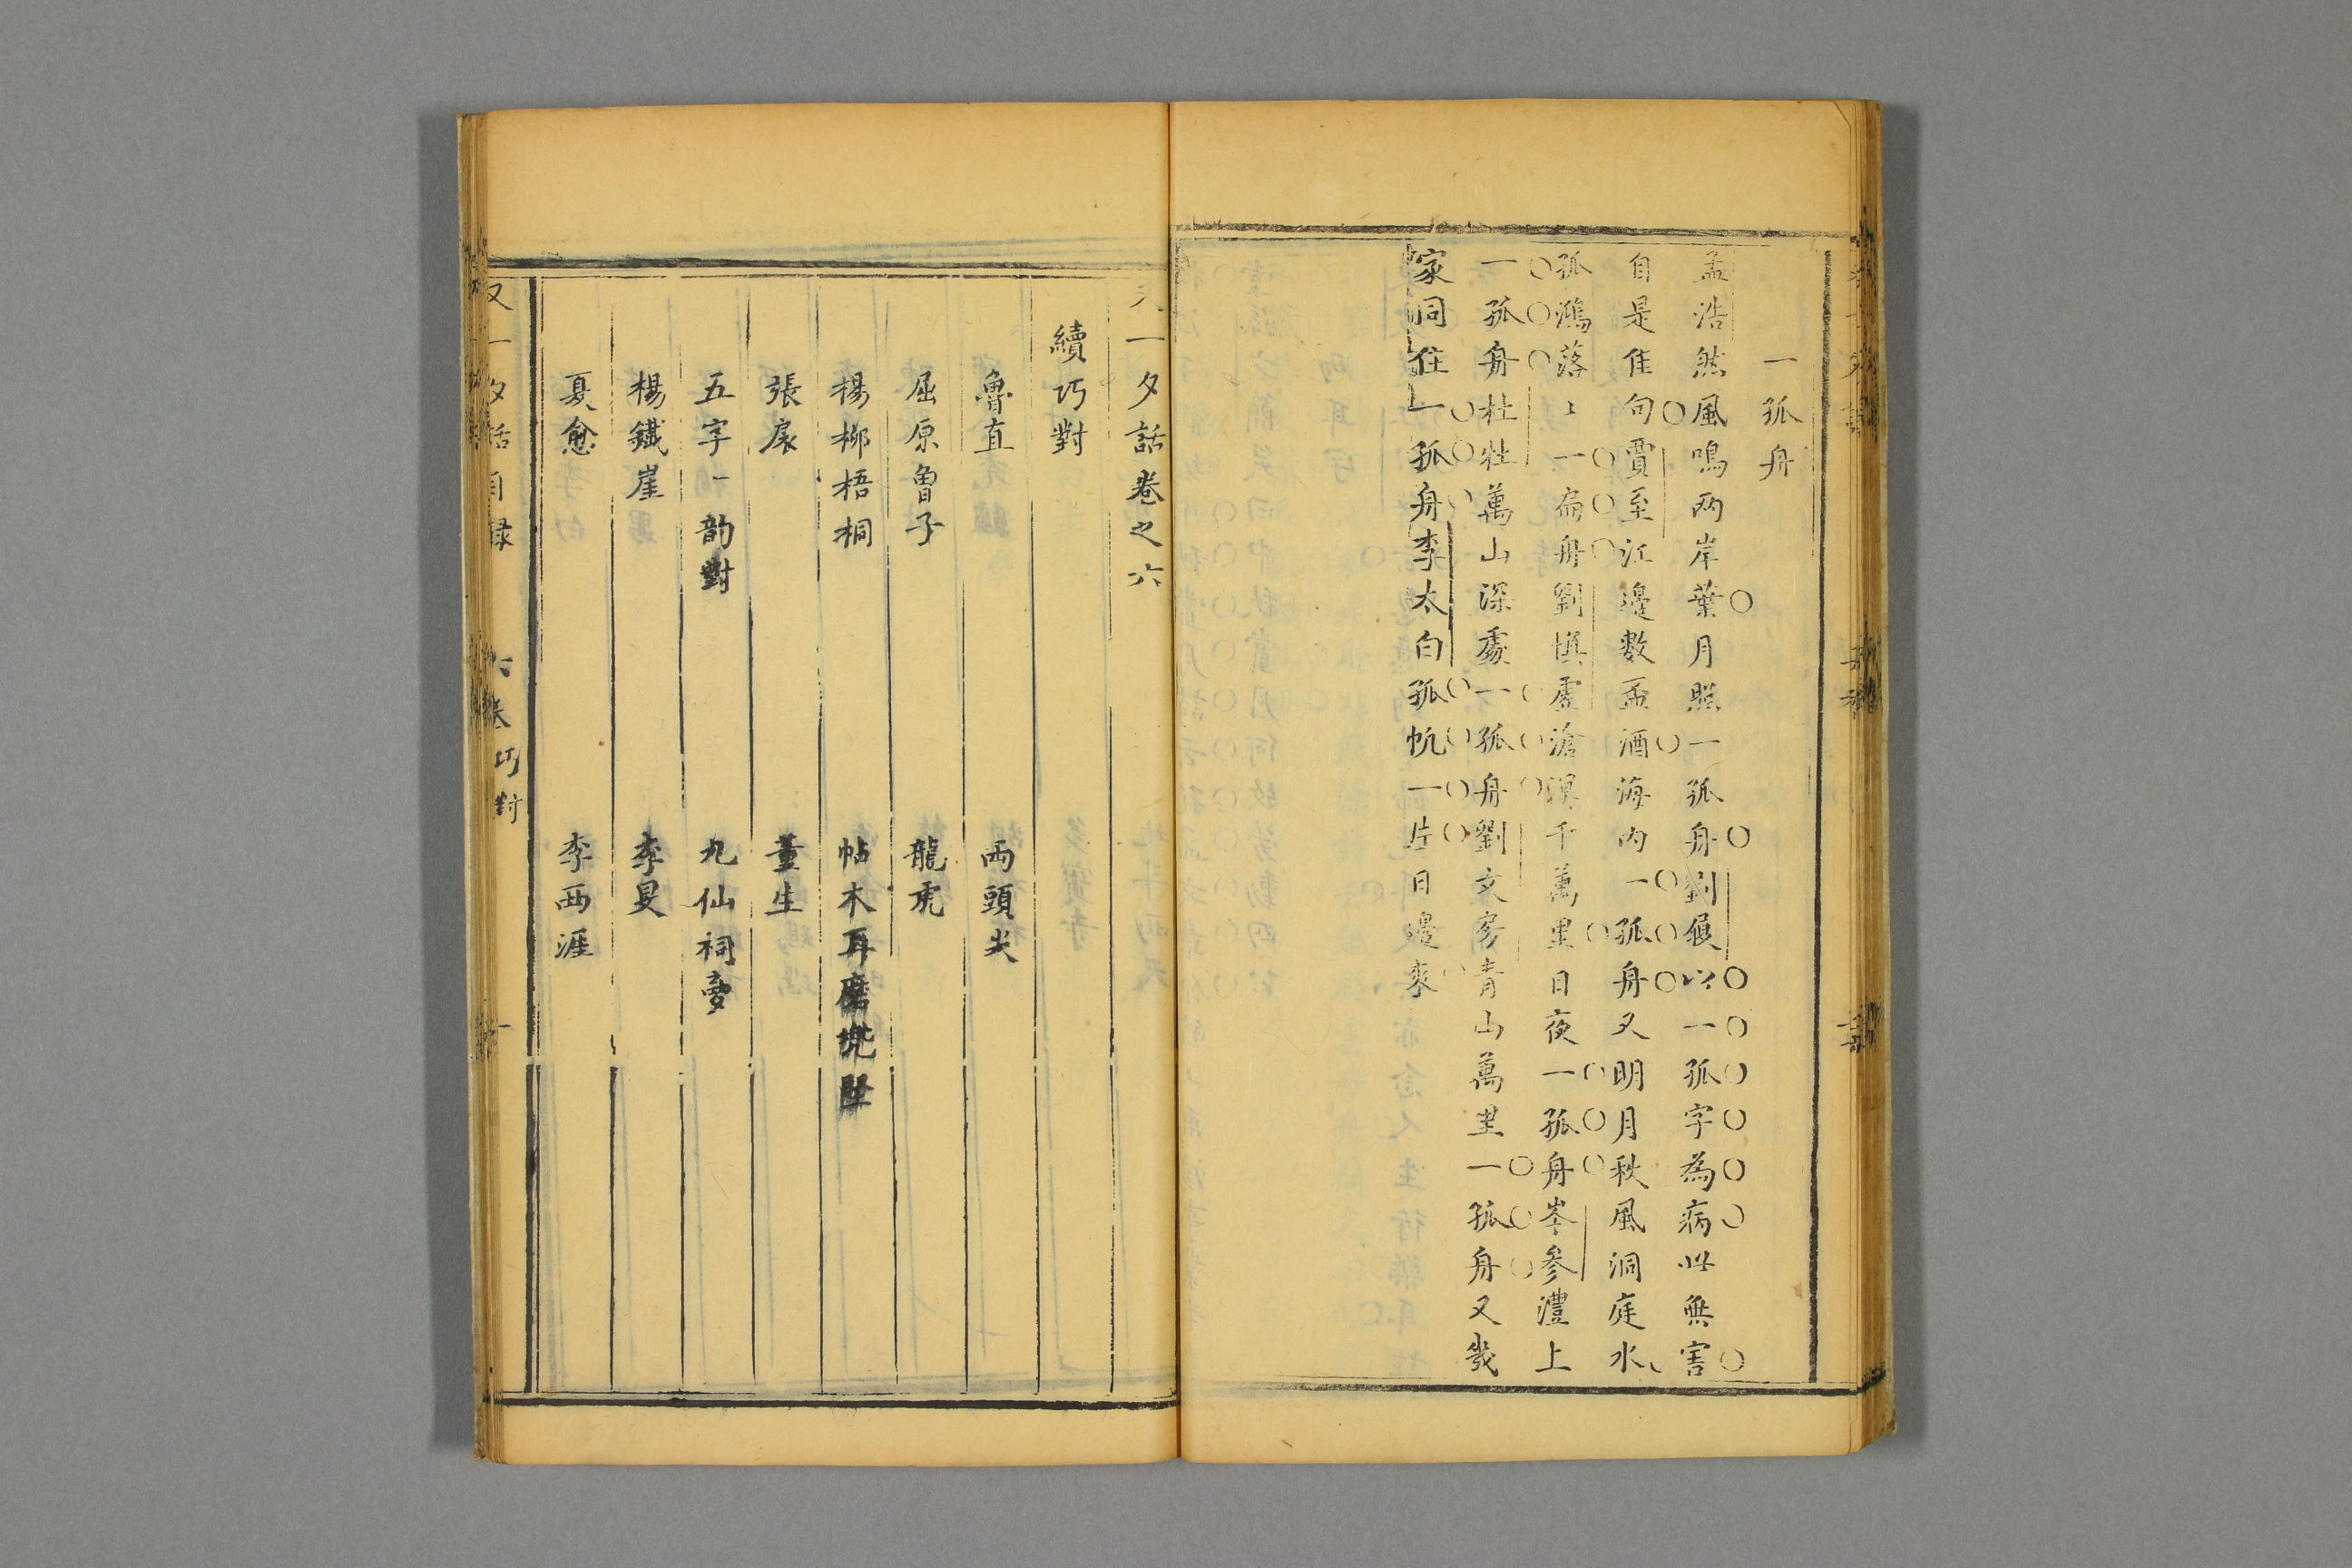 一孤舟
孟浩然風鳴兩岸葉月照一孤舟劉履以一孤字為病此無害
自是佳句賈至江邊數盃酒海內一孤舟又明月秋風洞庭水
孤鴻落〻一扁舟劉慎虛滄溟千萬里日夜一孤舟岑參澧上
一孤舟杜牡萬山深處一孤舟劉文房青山萬里一孤舟又幾
家同住一孤舟李太白孤帆一片日邊來
又一夕話卷之六
續巧對
魯直 兩頭尖
屈原魯子 龍虎
楊柳梧桐 帖木耳磨兜堅
張扆 董生
五字一韵對 九仙祠夢
楊鐵崖 李旻
夏愈 李西涯
又一夕話目錄 六集巧對 一